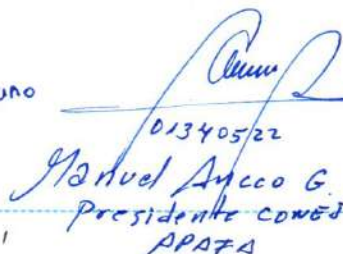 uno
01340522
Manuel Ancco G.
Presidente CONEI
APAFA